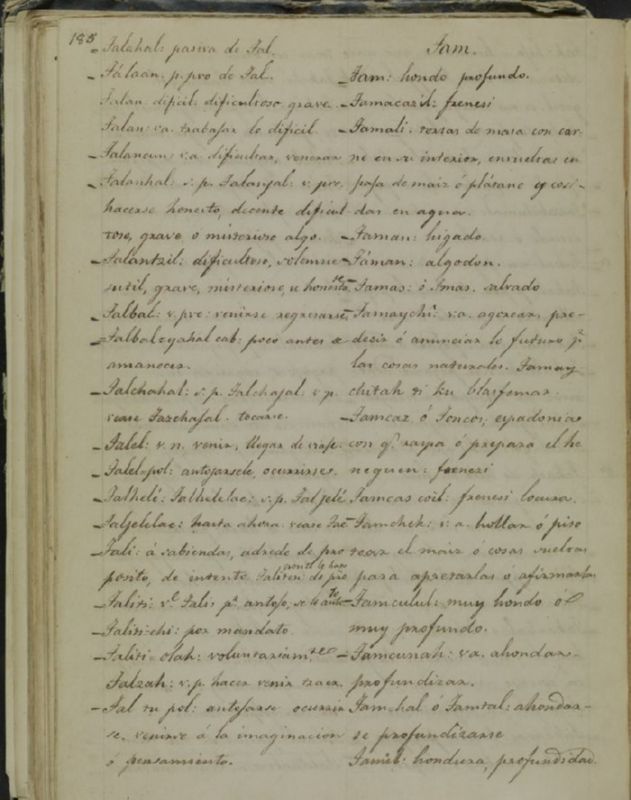 185
Talchal: pasiva de Tal.
Tálaan. p. pro de Tal.
Talan dificil, dificultoso, grave
Talan: va. trabajar lo dificil
Talancun: v.a. dificultar, venerar
Talanhal: s. p. Talanjal: v. pre.
hacerse honesto, decente dificul
toso, grave o misterioso algo.
Talantzil: dificultoso, solemne
sutil, grave, misterioso, u honesto
Talbal: v. pre: venirse regresarse,
Talbal cab: poco antes de
amanecer.
Talchahal: s. p. Talchajal: v. p.
vease Tazchajal. tocarse.
Talel: v. n. venir, llegar de
Talel-pol: antojarsele, ocurrirse.
Talheli: Talhelelac: s. p. Taljelé
Taljelelac: hasta ahora. vease Tac
Tali: á sabiendas, adrede de pro
posito, de intento
Taliti: Tali: antojo,
Taliti-chi: por mandato
Taliti-olah: voluntariam.te
Talzah: v. p. hacer venir traer
Tal tu pol: antojarse ocurrir
se, venirse á la imaginacion
ó pensamiento.
Tam.
Tam: hondo profundo.
Tamacazil: frenesi
Tamali: tortas de masa con car
ne en su interior, envueltas en
foja de maiz ó plátano y coci-
das en agua.
Taman: higado.
Táman: algodon.
Tamas: ó Tmas. salvado
Tamaychí: v.a. agorear, pre-
desir ó anunciar lo futuro p.r
las cosas naturales. Tamay
chitah ti ku blasfemar.
Tamcaz ó Toncos, espadonia
con q.e raspa ó prepara el he
nequen: frenezi
Tamcas coil: frenesi locura.
Tamchek: v. a. hollar ó piso
tear el maiz ó cosas sueltas
para apretarlas ó afirmarlas
Tamculul: muy hondo ó
muy profundo.
Tamcunah: va. ahondar
profundizar.
Tamhal ó Tamtal: ahondar-
se profundizarse
Tamil: hondura, profundidad.